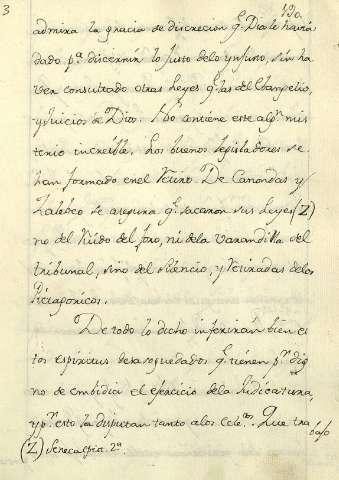 3
130.
admira la gracia de discrecion q.e Dios le havia
dado p.a discernir lo Justo delo ynjusto, sin ha
ver consultado otras Leyes q.e las del Ebangelio,
y Juicios de Dios. No contiene este alg.n mis
terio increible. Los buenos legisladores se
han formado en el Retiro. De Carondas y
Zaleuco se asegura q.e sacaron sus Leyes (Z)
no del Ruido del foro, ni dela varandilla del
tribunal, sino del silencio, y retiradas delos
Pictagoricos.
De todo lo dicho inferirán bien es
tos espiritus desasosegados q.e tienen p.r dig
no de embidia el exercicio dela Judicatura,
y p.r esto la disputan tanto alos Ecle.cos Que tra
bajo
(Z) Seneca epis. 2.a